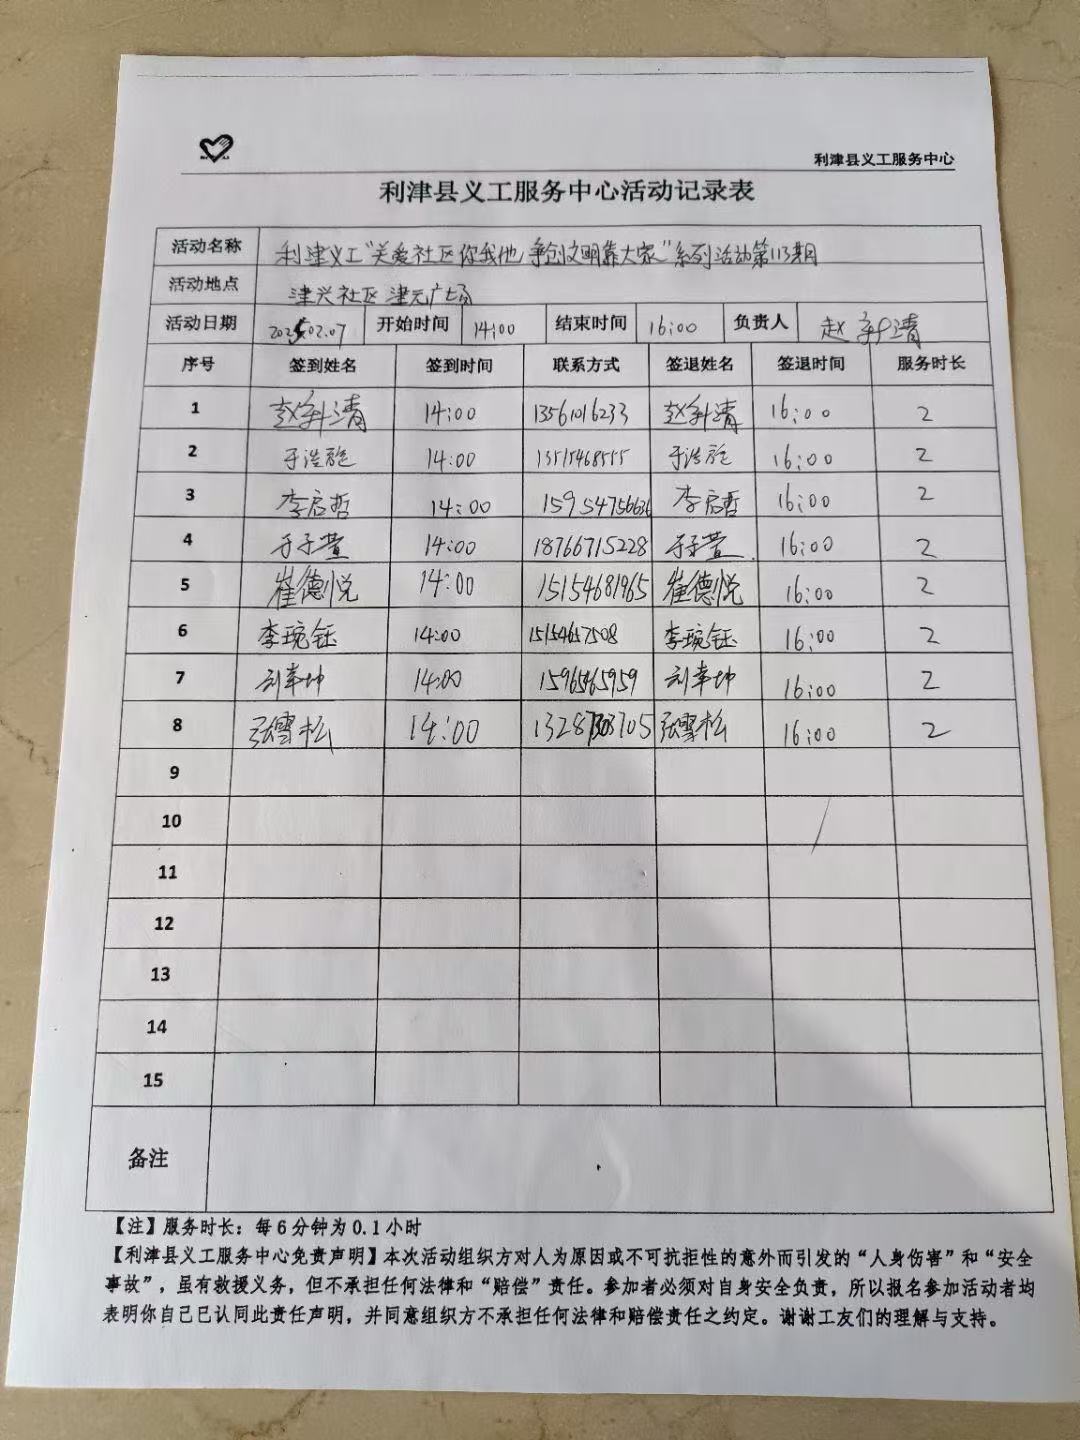 利津县义工服务中心
利津县义工服务中心活动记录表
活动名称 利津义工“关爱社区你我他 争创文明靠大家”系列活动第113期
活动地点 津兴社区 津元广场
活动日期 2025.02.07 开始时间 14:00 结束时间 16:00 负责人 赵新清
序号 签到姓名 签到时间 联系方式 签退姓名 签退时间 服务时长
1 赵新清 14:00 13561016233 赵新清 16:00 2
2 于浩 14:00 13515468555 于浩 16:00 2
3 李启哲 14:00 15954756636 李启哲 16:00 2
4 于子萱 14:00 18766715228 于子萱 16:00 2
5 崔德悦 14:00 15154681965 崔德悦 16:00 2
6 李琬钰 14:00 15154657508 李琬钰 16:00 2
7 刘幸坤 14:00 15965465959 刘幸坤 16:00 2
8 张雪松 14:00 张雪松 16:00 2
9
10
11
12
13
14
15
备注
【注】服务时长：每6分钟为0.1小时
【利津县义工服务中心免责声明】本次活动组织方对人为原因或不可抗拒性的意外而引发的“人身伤害”和“安全
事故”，虽有救援义务，但不承担任何法律和“赔偿”责任。参加者必须对自身安全负责，所以报名参加活动者均
表明你自己已认同此责任声明，并同意组织方不承担任何法律和赔偿责任之约定。谢谢工友们的理解与支持。